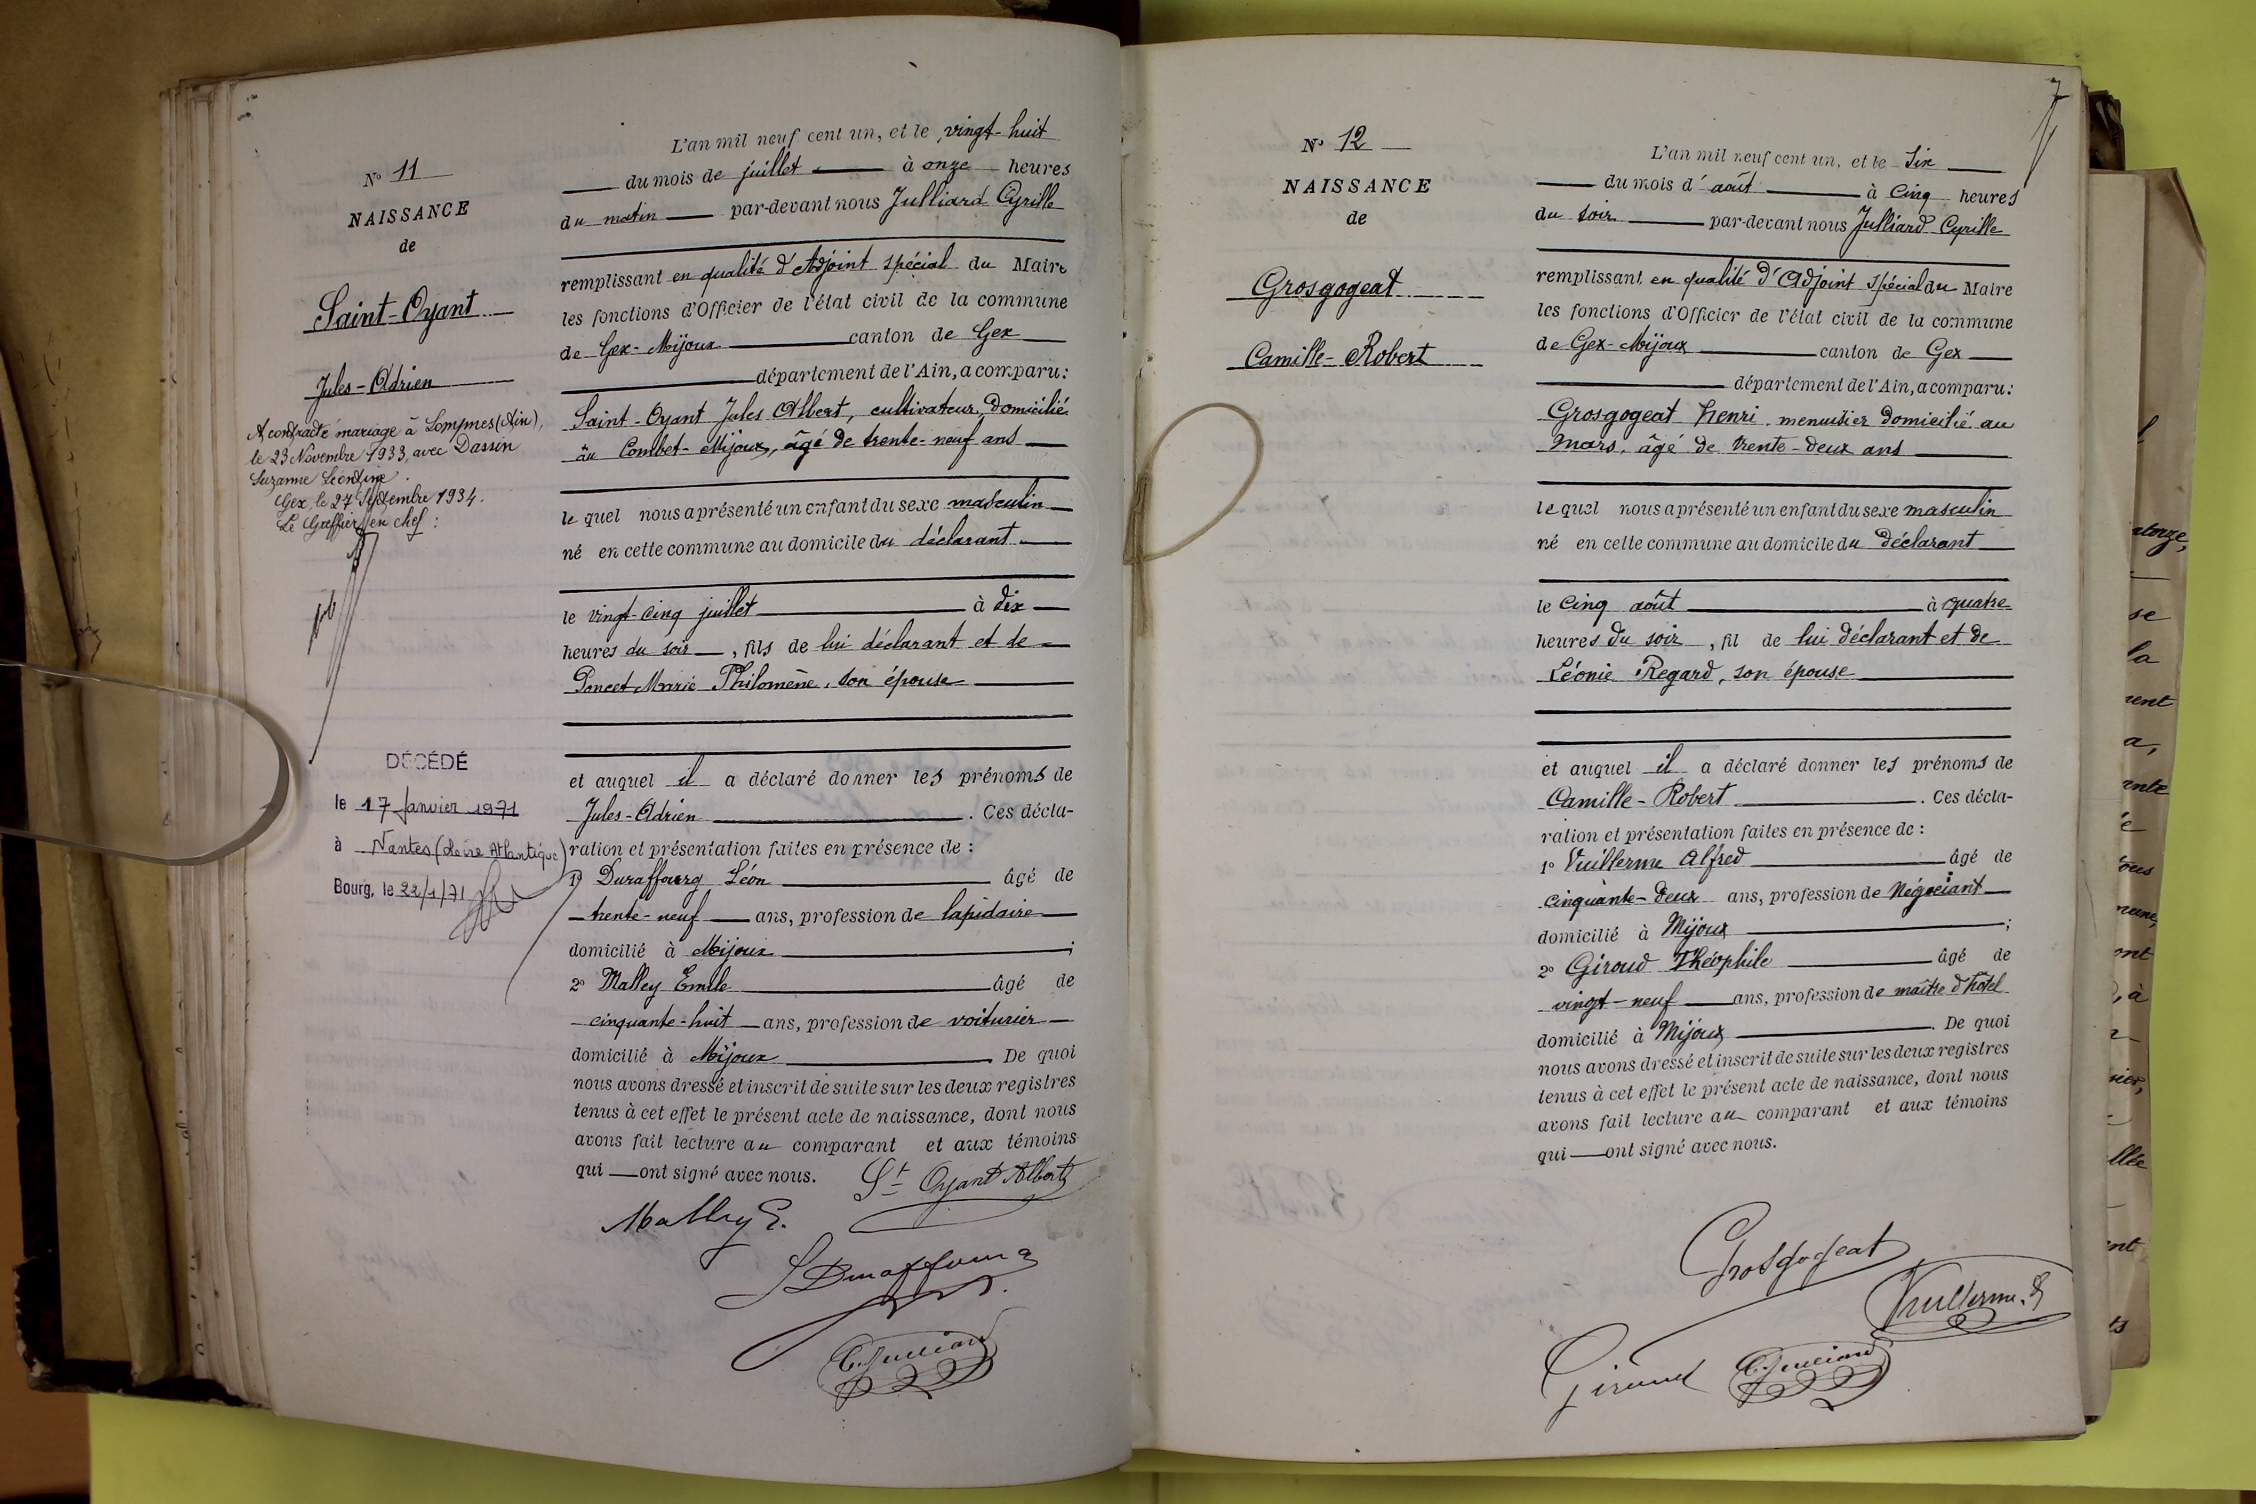 N° 11
NAISSANCE
de
Saint-Oyant
Jules-Adrien
A contracté mariage à Lompnes (Ain),
le 23 Novembre 1933, avec Dassin
Suzanne Léontine.
Gex, le 27 Septembre 1934.
Le Greffier en chef :
DÉCÉDÉ
le 17 Janvier 1971
à Nantes (Loire Atlantique)
Bourg, le 22/1/71
L'an mil neuf cent un, et le vingt-huit
du mois de juillet à onze heures
du matin par-devant nous Julliard Cyrille
remplissant en qualité d'Adjoint spécial du Maire
les fonctions d'Officier de l'état civil de la commune
de Gex-Mijoux canton de Gex
département de l'Ain, a comparu :
Saint-Oyant Jules Albert, cultivateur, domicilié
au Combet-Mijoux, âgé de trente-neuf ans
lequel nous a présenté un enfant du sexe masculin
né en cette commune au domicile du déclarant
le vingt-cinq juillet à dix
heures du soir, fils de lui déclarant et de
Poncet Marie Philomène, son épouse
et auquel il a déclaré donner les prénoms de
Jules-Adrien. Ces décla-
ration et présentation faites en présence de :
1° Duraffourg Léon âgé de
trente-neuf ans, profession de lapidaire
domicilié à Mijoux ;
2° Malley Emile âgé de
cinquante-huit ans, profession de voiturier
domicilié à Mijoux. De quoi
nous avons dressé et inscrit de suite sur les deux registres
tenus à cet effet le présent acte de naissance, dont nous
avons fait lecture au comparant et aux témoins
qui ont signé avec nous. St Oyant Albert
Malley E.
L Duraffourg
C. Julliard
7
N° 12
NAISSANCE
de
Grosgogeat
Camille-Robert
L'an mil neuf cent un, et le six
du mois d'août à cinq heures
du soir par-devant nous Julliard Cyrille
remplissant en qualité d'Adjoint spécial du Maire
les fonctions d'Officier de l'état civil de la commune
de Gex-Mijoux canton de Gex
département de l'Ain, a comparu :
Grosgogeat Henri, menuisier domicilié au
Mars, âgé de trente-deux ans
lequel nous a présenté un enfant du sexe masculin
né en cette commune au domicile du déclarant
le cinq août à quatre
heures du soir, fil de lui déclarant et de
Léonie Regard, son épouse
et auquel il a déclaré donner les prénoms de
Camille-Robert. Ces décla-
ration et présentation faites en présence de :
1° Vuillerme Alfred âgé de
cinquante-deux ans, profession de négociant
domicilié à Mijoux ;
2° Giroud Théophile âgé de
vingt-neuf ans, profession de maître d'hôtel
domicilié à Mijoux. De quoi
nous avons dressé et inscrit de suite sur les deux registres
tenus à cet effet le présent acte de naissance, dont nous
avons fait lecture au comparant et aux témoins
qui ont signé avec nous.
Grosgogeat
Vuillerme. A
Giroud C. Julliard